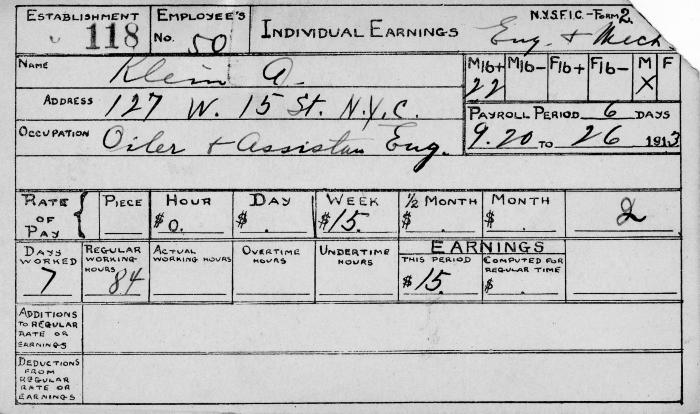 ESTABLISHMENT 118
EMPLOYEE'S No. 50
INDIVIDUAL EARNINGS
N.Y.S.F.I.C.-FORM 2.
Eng. & Mech.
NAME Klein A.
M16+ M16- F16+ F16- M F
22 X
ADDRESS 127 W. 15 St. N.Y.C.
PAYROLL PERIOD 6 DAYS
9.20 TO 26 1913
OCCUPATION Oiler & Assistan Eng.
RATE OF PAY { PIECE HOUR $0. DAY $ . WEEK $15. 1/2 MONTH $ . MONTH $ . 2
DAYS WORKED 7
REGULAR WORKING HOURS 84
ACTUAL WORKING HOURS
OVERTIME HOURS
UNDERTIME HOURS
EARNINGS
THIS PERIOD $15.
COMPUTED FOR REGULAR TIME $ .
ADDITIONS TO REGULAR RATE OR EARNINGS
DEDUCTIONS FROM REGULAR RATE OR EARNINGS